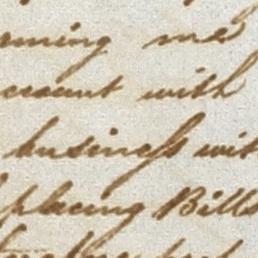 ming me
ccount with
business with
placing Bills